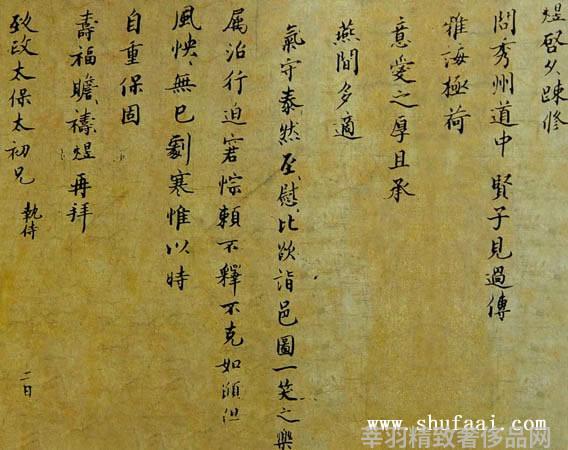 煜啓久疎修
問秀州道中賢子見過傳
雅誨極荷
意愛之厚且承
燕閒多適
氣守泰然至慰比欲詣邑圖一笑之樂
属治行迫窘悰頼不釋不克如願但
風怏無已劇寒惟以時
自重保固
壽福瞻禱煜再拜
致政太保太初兄 執侍
二日
www.shufaai.com
幸羽精致奢侈品网